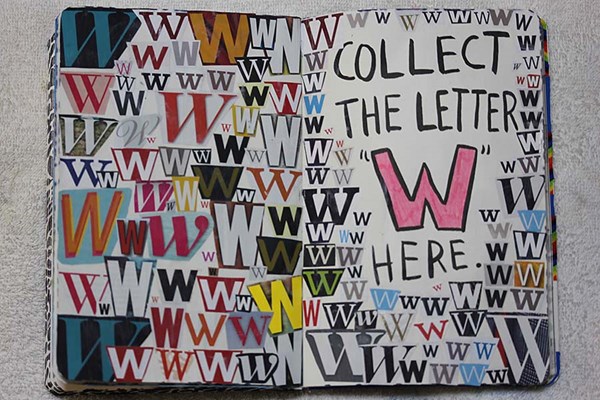 COLLECT
THE LETTER
"W"
HERE.